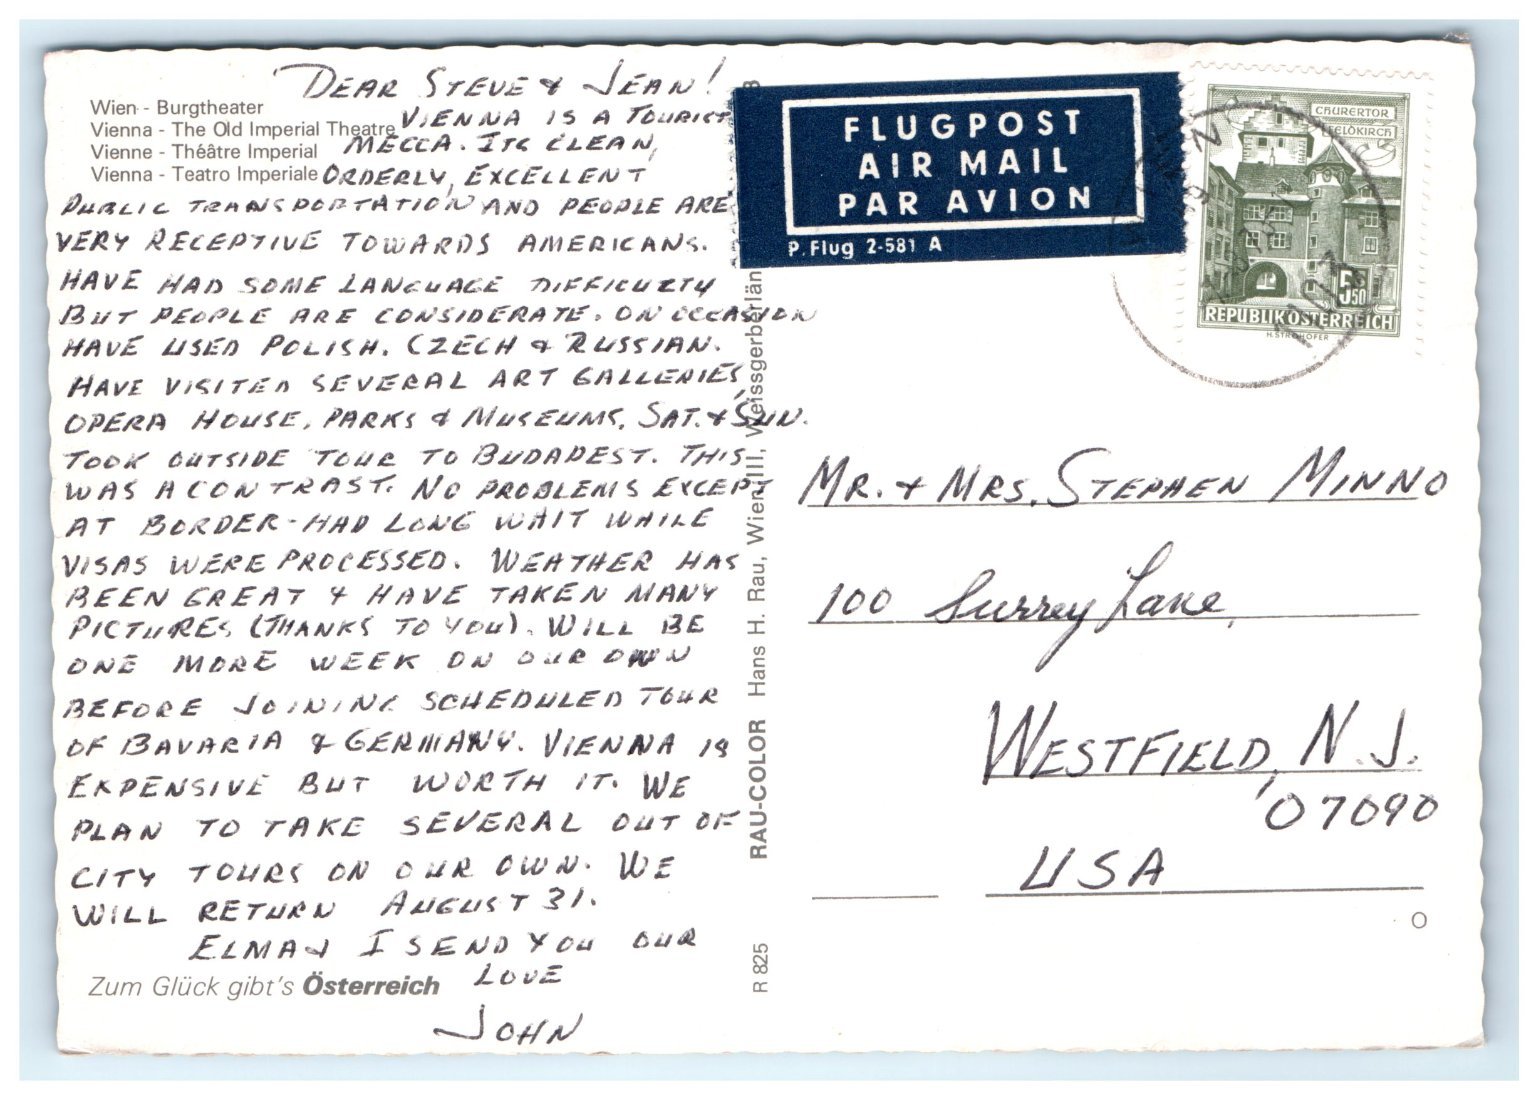 Wien - Burgtheater
Vienna - The Old Imperial Theatre
Vienne - Théâtre Imperial
Vienna - Teatro Imperiale
DEAR STEVE & JEAN!
VIENNA IS A TOURIST
MECCA. ITS CLEAN,
ORDERLY, EXCELLENT
PUBLIC TRANSPORTATION AND PEOPLE ARE
VERY RECEPTIVE TOWARDS AMERICANS.
HAVE HAD SOME LANGUAGE DIFFICULTY
BUT PEOPLE ARE CONSIDERATE. ON OCCASION
HAVE USED POLISH, CZECH & RUSSIAN.
HAVE VISITED SEVERAL ART GALLERIES,
OPERA HOUSE, PARKS & MUSEUMS. SAT. & SUN.
TOOK OUTSIDE TOUR TO BUDAPEST. THIS
WAS A CONTRAST. NO PROBLEMS EXCEPT
AT BORDER - HAD LONG WAIT WHILE
VISAS WERE PROCESSED. WEATHER HAS
BEEN GREAT & HAVE TAKEN MANY
PICTURES (THANKS TO YOU). WILL BE
ONE MORE WEEK ON OUR OWN
BEFORE JOINING SCHEDULED TOUR
OF BAVARIA & GERMANY. VIENNA IS
EXPENSIVE BUT WORTH IT. WE
PLAN TO TAKE SEVERAL OUT OF
CITY TOURS ON OUR OWN. WE
WILL RETURN AUGUST 31.
ELMA & I SEND YOU OUR
LOVE
JOHN
Zum Glück gibt's Österreich
R 825
RAU-COLOR Hans H. Rau, Wien III, Weissgerberlän
FLUGPOST
AIR MAIL
PAR AVION
P. Flug 2-581 A
CHURERTOR
FELDKIRCH
5,50
REPUBLIK ÖSTERREICH
H. STROHOFER
MR. & MRS. STEPHEN MINNO
100 Surrey Lane,
WESTFIELD, N.J.
07090
USA